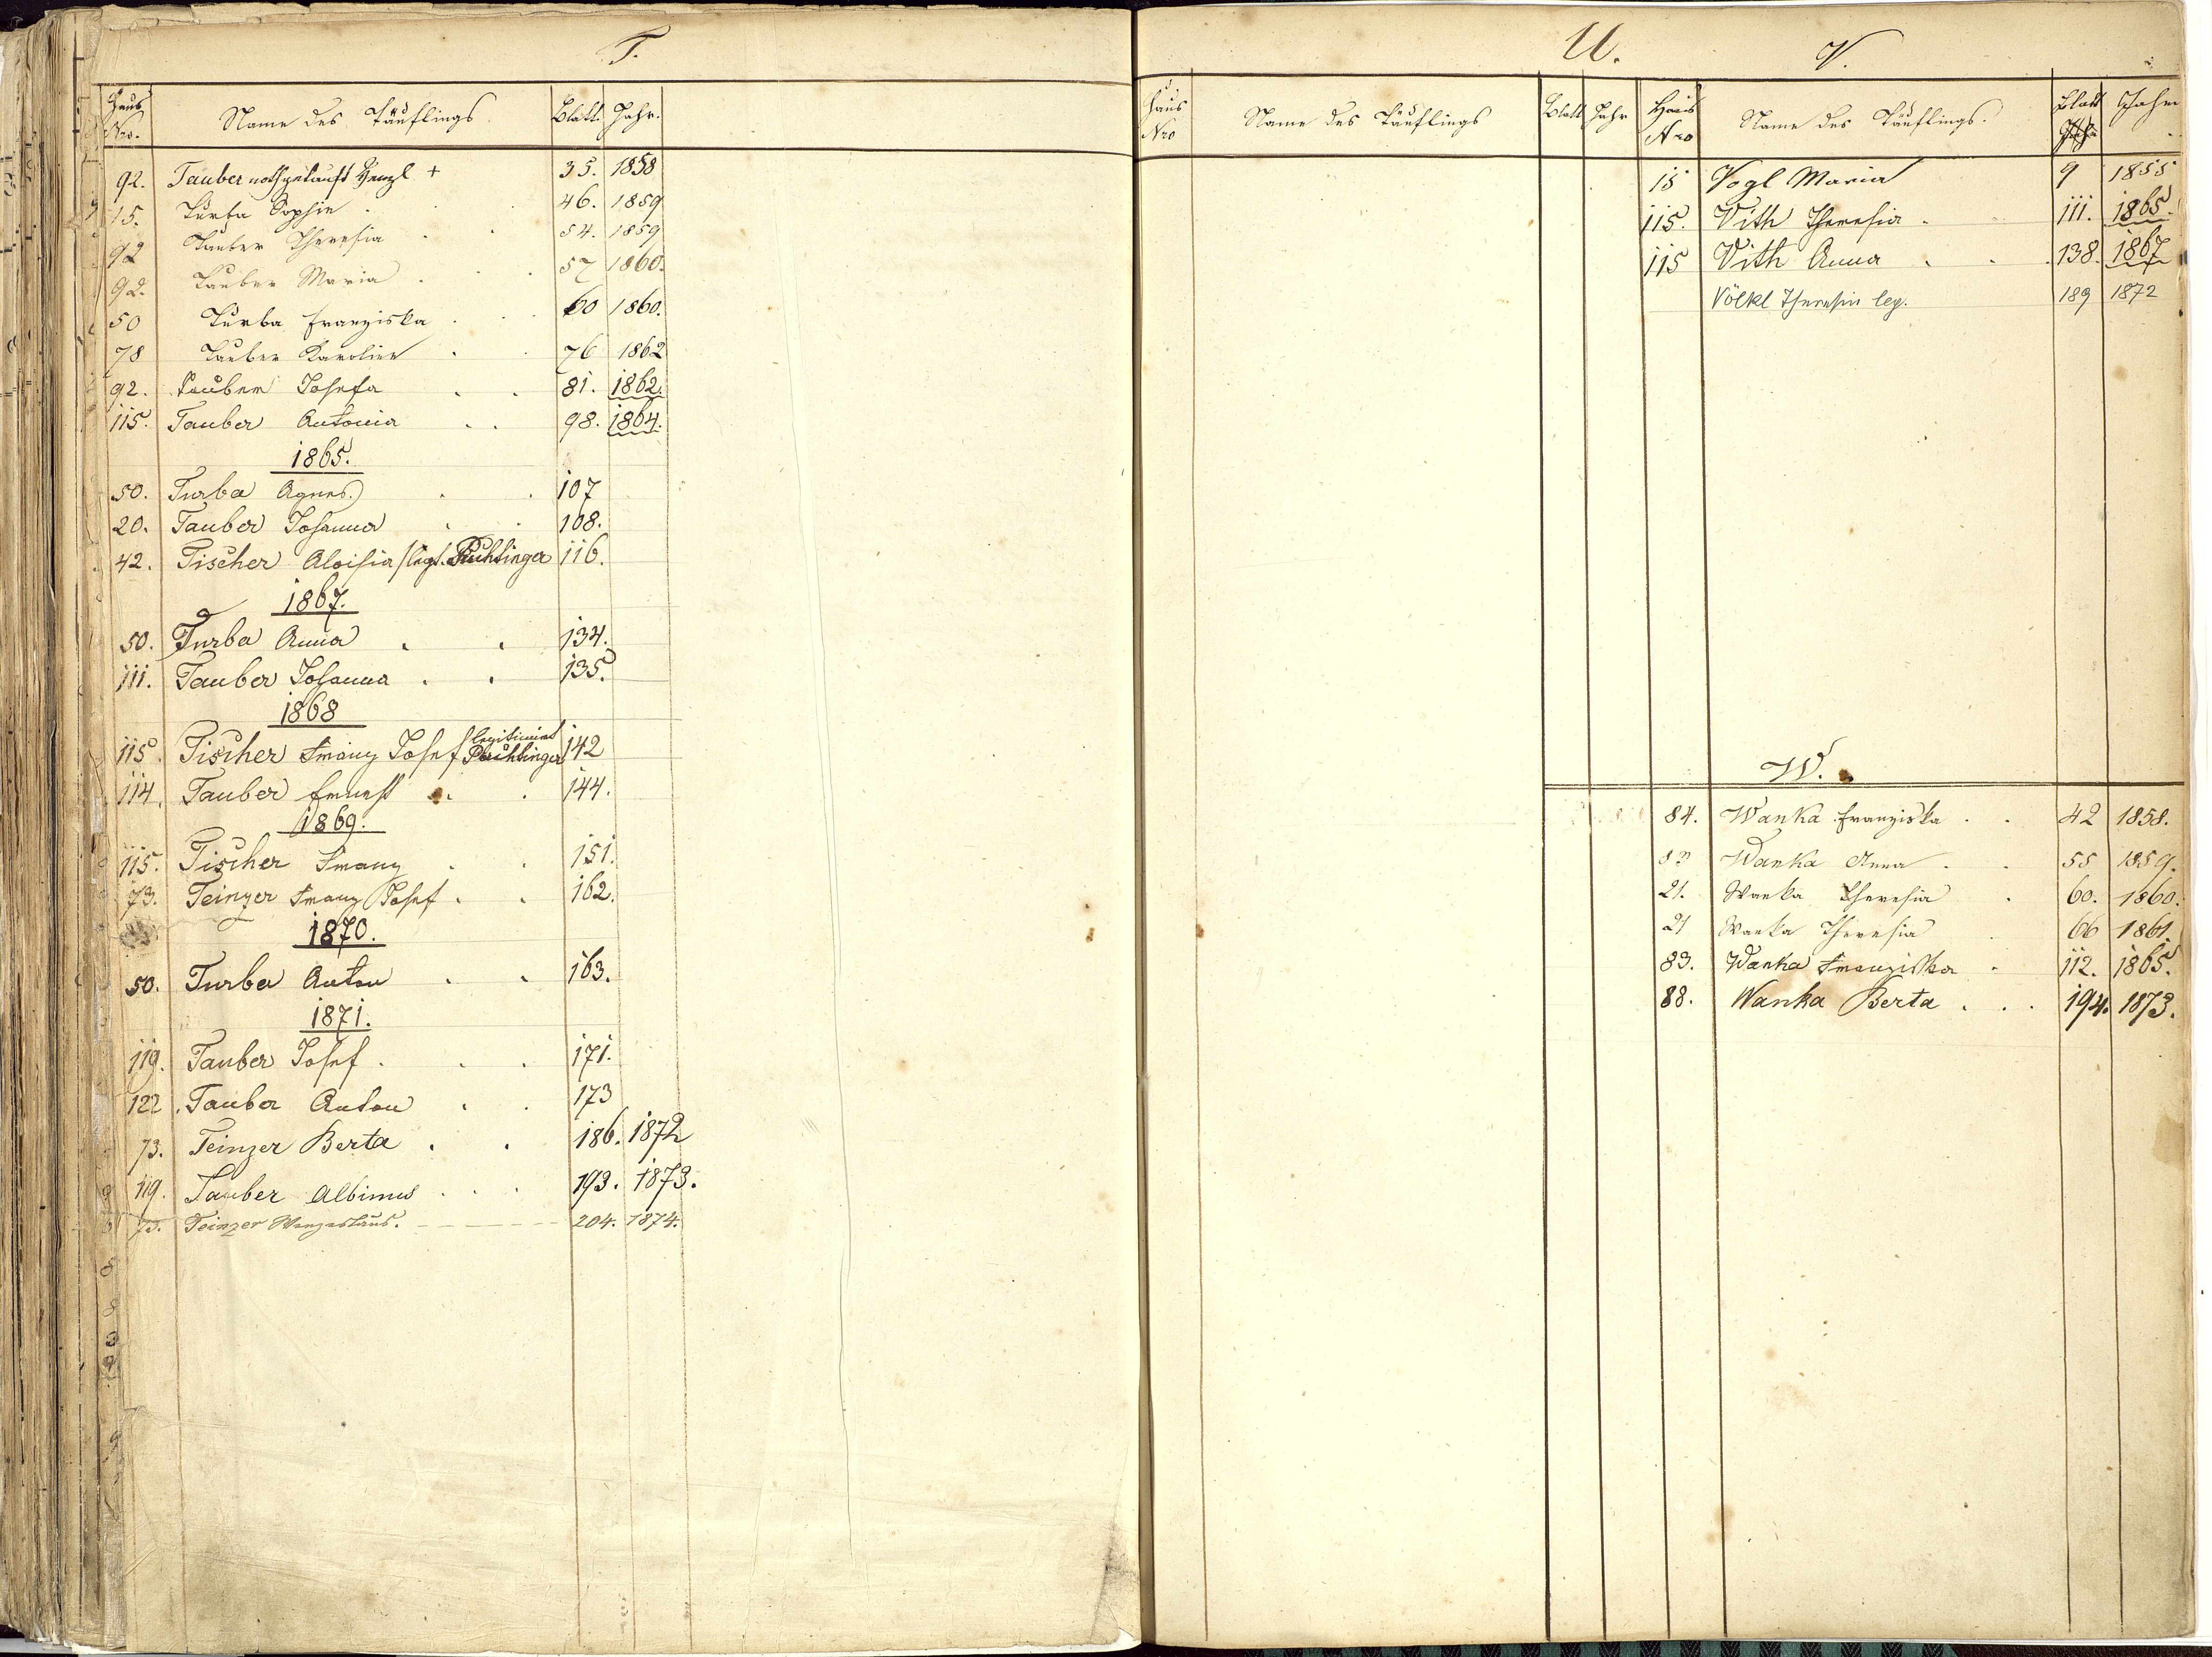 T.
Haus Nro. Name des Täuflings Blatt. Jahr.
92. Tauber nothgetauft + 35. 1858
15. Turba Sophie . 46. 1859
92 Tauber Theresia . . 54. 1859
92. Tauber Maria . . 57 1860.
50 Turba Franziska . . 60 1860.
78 Tauber Karolina . . 76 1862
92. Tauber Josefa . . 81. 1862.
115. Tauber Antonia . . 98. 1864.
1865.
50. Turba Agnes . . 107
20. Tauber Johanna . . 108.
42. Tischer Aloisia /legt. Puchtinger 116.
1867.
50. Turba Anna . . 134.
111. Tauber Johanna . . 135.
1868
legitimirt
115. Tischer Franz Josef Puchtinger 142
114. Tauber Ernest . . 144.
1869.
115. Tischer Franz . . 151.
73. Teinzer Franz Josef . . 162.
1870.
50. Turba Anton . . 163.
1871.
119. Tauber Josef . . . 171.
122. Tauber Anton . . 173
73. Teinzer Berta . . 186. 1872
119. Tauber Albinus . . . 193. 1873.
73. Teinzer Wenzeslaus. 204. 1874.
U.
Haus Nro Name des Täuflings Blatt Jahr
V.
Haus Nro Name des Täuflings. Blatt Jahr
15 Vogl Maria 9 1855
115. Vith Theresia . 111. 1865.
115 Vith Anna . . 138. 1867
Völkl Theresia leg. 189 1872
W.
84. Wanka Franziska . . 42 1858.
83 Wanka Anna . . 55 1859.
21. Wanka Theresia . 60. 1860.
21 Wanka Theresia . 66 1861.
83. Wanka Franziska . 112. 1865.
88. Wanka Berta . . . 194. 1873.